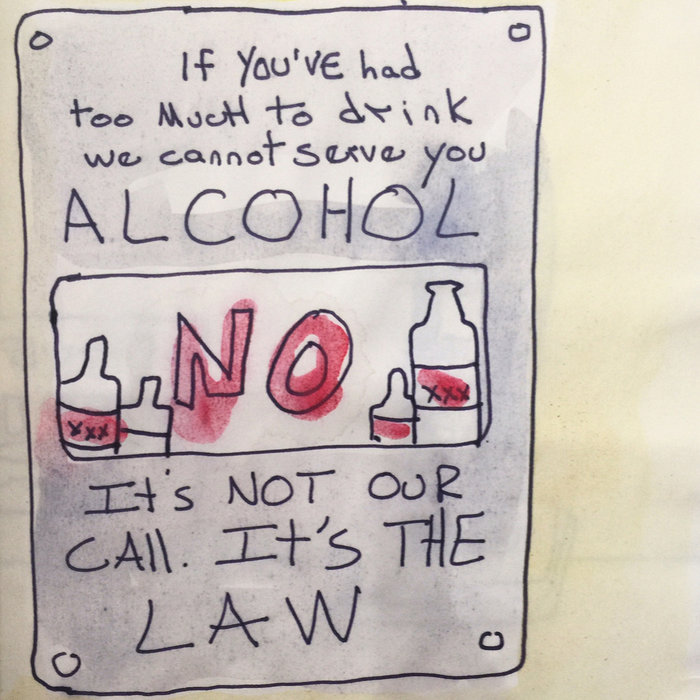 If YOU'VE had
too MucH to drink
we cannot serve you
ALCOHOL
NO
xxx
xxx
It's NOT OUR
CAll. It's THE
LAW